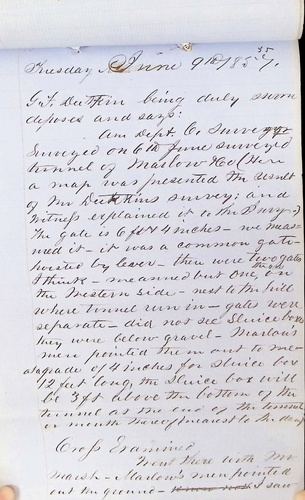 35
Tuesday June 9th 1857.
G. F. Deetken being duly sworn
deposes and says:
Am Dept. Co. Surveyor
Surveyed on 6th June surveyed
tunnel of Marlow & Co (Here
a map was presented the result
of Mr Deetkins survey; and
Witness explained it to the Jury.)
The gate is 6 ft x 4 inches – we meas-
ured it – it was a common gate
hoisted by lever – there were two gates
I think – measured but one on
the Western side – next to the hill
where tunnel run in – gates were
separate – did not see Sluice boxes
they were below gravel – Marlow's
men pointed them out to me –
at a grade of 4 inches for sluice box
12 feet long, the sluice box will
be 3 ft above the bottom of the
tunnel at the end of the tunnel
or mouth thereof nearest to the dam
Cross Examined
Went there with Mr
Marsh – Marlow's men pointed
out the ground – I saw